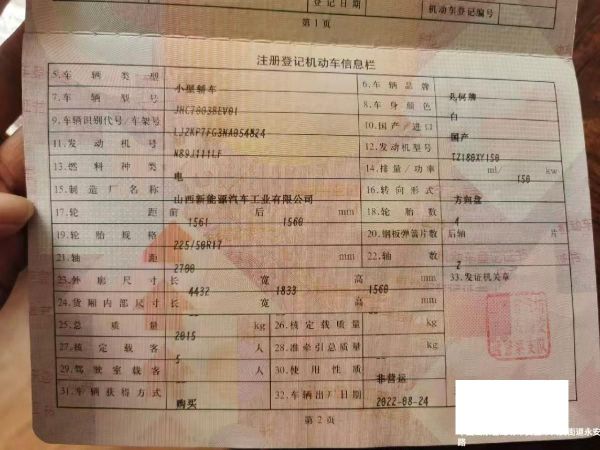 登记日期
机动车登记编号
第1页
注册登记机动车信息栏
5.车辆类型 小型轿车 6.车辆品牌 几何牌
7.车辆型号 8.车身颜色 白
9.车辆识别代号/车架号 10.国产/进口 国产
11.发动机号 N89J111LF 12.发动机型号 TZ180XY150
13.燃料种类 电 14.排量/功率 ml/ 150 kw
15.制造厂名称 山西新能源汽车工业有限公司 16.转向形式 方向盘
17.轮距 前 1561 后 1560 mm 18.轮胎数 4
19.轮胎规格 225/50R17 20.钢板弹簧片数 后轴 片
21.轴距 2700 mm 22.轴数 2
23.外廓尺寸 长 4432 宽 1833 高 1560 mm 33.发证机关章
24.货厢内部尺寸 长 -- 宽 -- 高 -- mm
25.总质量 2015 kg 26.核定载质量 -- kg
27.核定载客 5 人 28.准牵引总质量 -- kg
29.驾驶室载客 -- 人 30.使用性质 非营运
31.车辆获得方式 购买 32.车辆出厂日期 2022-08-24
第2页
街道永安
路